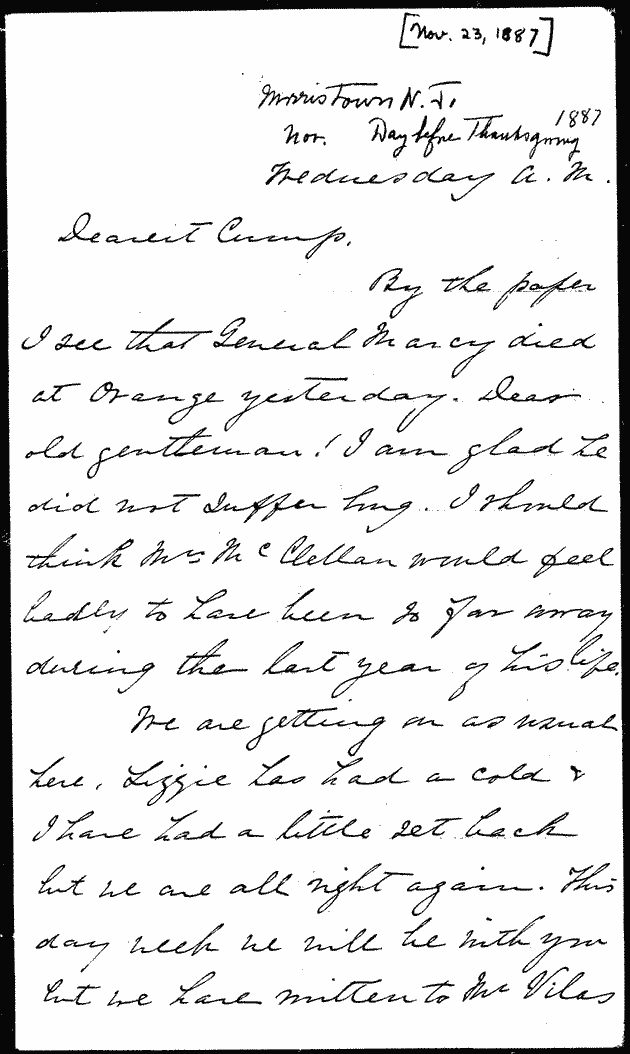 [Nov. 23, 1887]
Morristown N. J.
1887
Nov. Day before Thanksgiving
Wednesday A. M.
Dearest Cump,
By the paper
I see that General Marcy died
at Orange yesterday. Dear
old gentleman! I am glad he
did not suffer long. I should
think Mrs McClellan would feel
badly to have been so far away
during the last year of his life.
We are getting on as usual
here. Lizzie has had a cold &
I have had a little set back
but we are all right again. This
day week we will be with you
but we have written to Mr Vilas